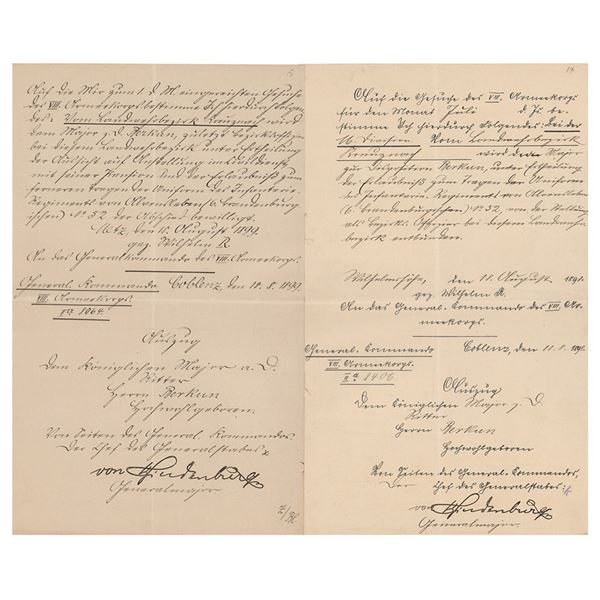 13
Auf die Mir zum 1. d. M. eingereichten Gesuche
des VIII. Armeekorps bestimme Ich hierdurch Folgen
des: Vom Landwehrbezirk Kreuznach wird
dem Major z. D. Berkun, zuletzt Bezirksoffizier
bei diesem Landwehrbezirk unter Ertheilung
der Aussicht auf Anstellung im Civildienst
mit seiner Pension und der Erlaubniß zum
ferneren Tragen der Uniform des Infanterie
Regiments von Alvensleben (6. Brandenburg
ischen) No 52 der Abschied bewilligt.
Metz, den 18. August 1899.
gez. Wilhelm R.
An das Generalkommando des VIII. Armeekorps.
General-Kommando Coblenz, den 18. 8. 1899.
VIII. Armeekorps.
1064.
Auszug
Dem Königlichen Major a. D.
Ritter
Herrn Berkun
Hochwohlgeboren.
Von Seiten des General-Kommandos
Der Chef des Generalstabes
von Hindenburg
Generalmajor
14
Auf die Gesuche des VIII. Armeekorps
für den Monat Juli d. Js. be-
stimme Ich hierdurch Folgendes: Bei der
16. Division. Vom Landwehrbezirk
Kreuznach wird der Major
zur Disposition Berkun, unter Ertheilung
der Erlaubniß zum Tragen der Uniform
des Infanterie-Regiments von Alvensleben
(6. Brandenburgischen) No 52, von der Stellung
als Bezirks-Offizier bei diesem Landwehr-
bezirk entbunden.
Wilhelmshöhe, den 11. August 1898.
gez. Wilhelm R.
An das General-Commando des VIII. Ar-
meekorps.
General-Commando Coblenz, den 11. 8. 1898.
VIII. Armeekorps.
II a 8406.
Auszug
Dem Königlichen Major z. D.
Ritter
Herrn Berkun
Hochwohlgeboren
Von Seiten des General-Commandos,
Der Chef des Generalstabes:
von Hindenburg
Generalmajor.